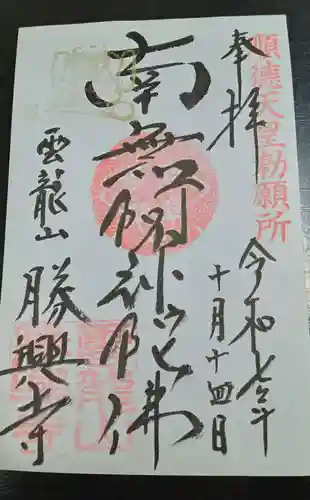 順徳天皇勅願所
奉拝
令和七年
十月十四日
南無阿弥陀佛
雲龍山
勝興寺